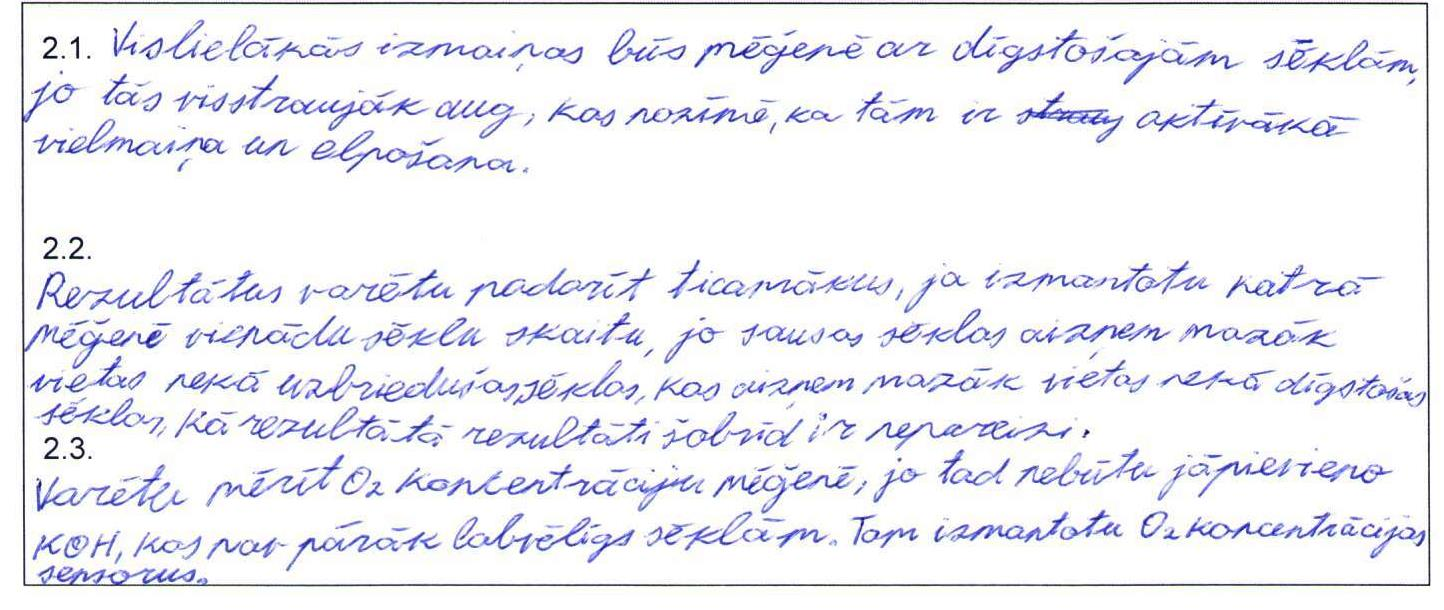 2.1. Vislielākās izmaiņas būs mēģenē ar dīgstošajām sēklām,
jo tās visstraujāk aug, kas nozīmē, ka tām ir strauj aktīvākā
vielmaiņa un elpošana.
2.2.
Rezultātus varētu padarīt ticamākus, ja izmantotu katrā
mēģenē vienādu sēklu skaitu, jo sausas sēklas aizņem mazāk
vietas nekā uzbriedušas sēklas, kas aizņem mazāk vietas nekā dīgstošas
sēklas, kā rezultātā rezultāti šobrīd ir nepareizi.
2.3.
Varētu mērīt O₂ koncentrāciju mēģenē, jo tad nebūtu jāpievieno
KOH, kas nav pārāk labvēlīgs sēklām. Tam izmantotu O₂ koncentrācijas
sensorus.